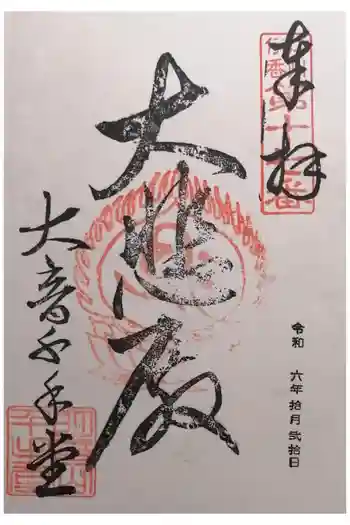 奉拝
大悲殿
大音千手堂
令和 六年 拾月 弐拾日